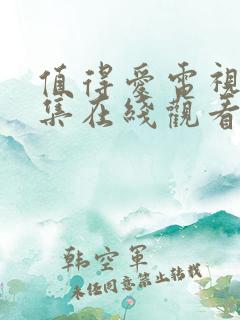 值得爱電視
集在綫觀看
韩空軍
未经同意禁止转载